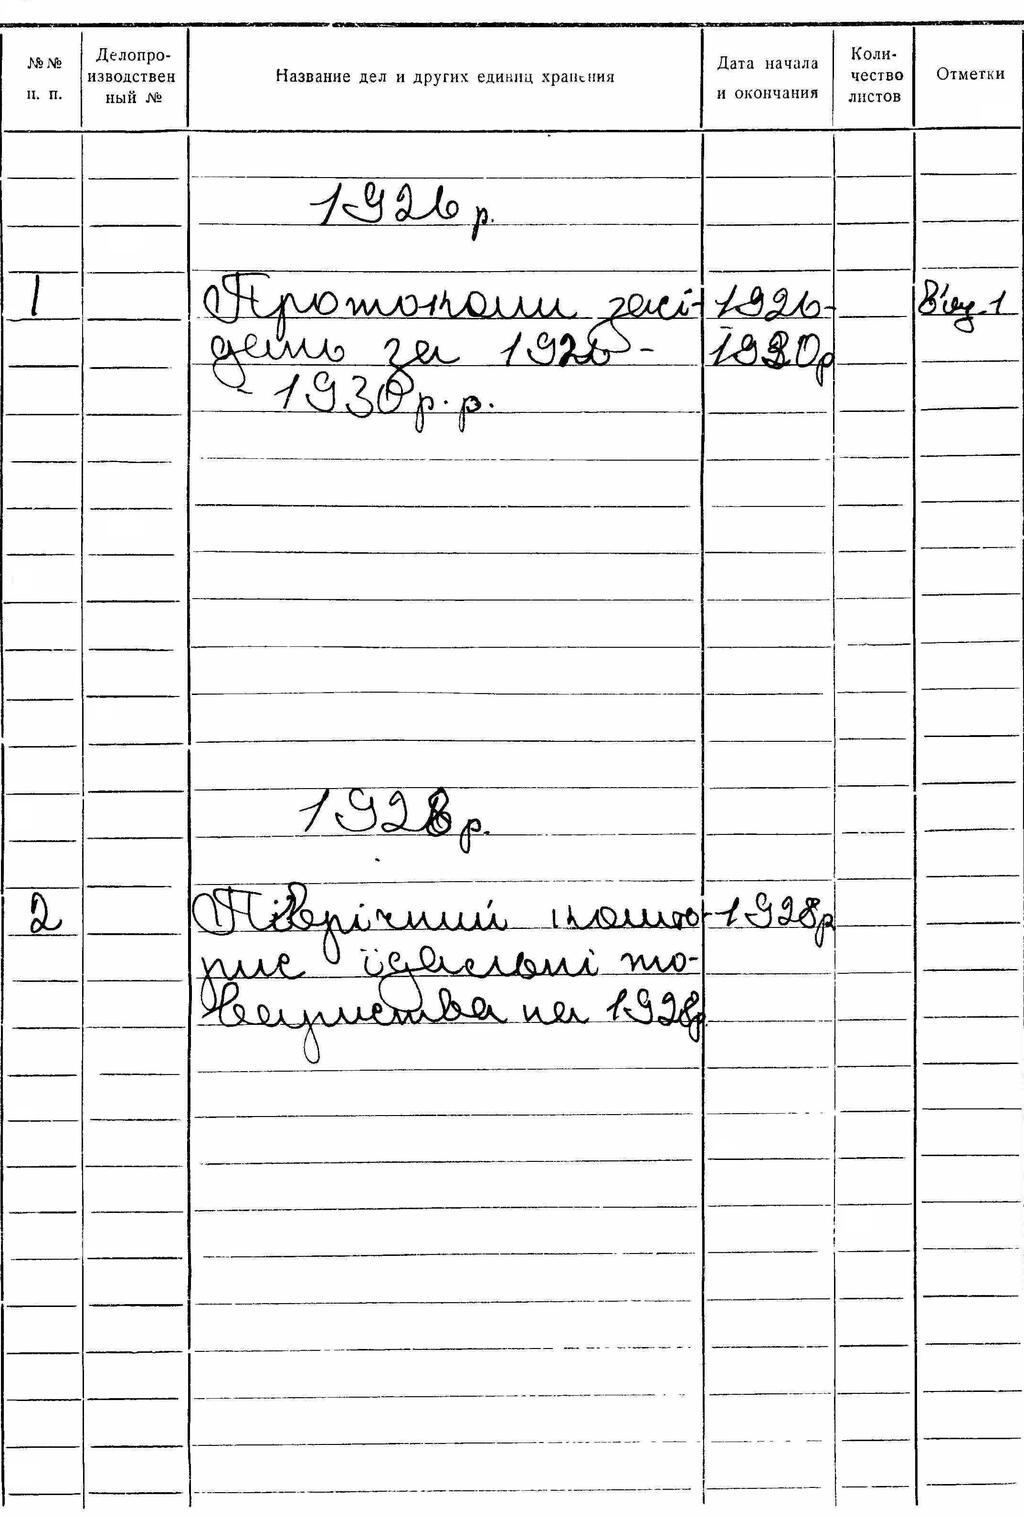 №№ п. п.
Делопро-
изводствен
ный №
Название дел и других единиц хранения
Дата начала
и окончания
Коли-
чество
листов
Отметки
1926 р.
1 Протоколи засі- 1926-
дань за 1926 - 1930р
- 1930 р. р.
1928 р.
2 Піврічний кошто- 1928р
рис їдальні то-
вариства на 1928р.